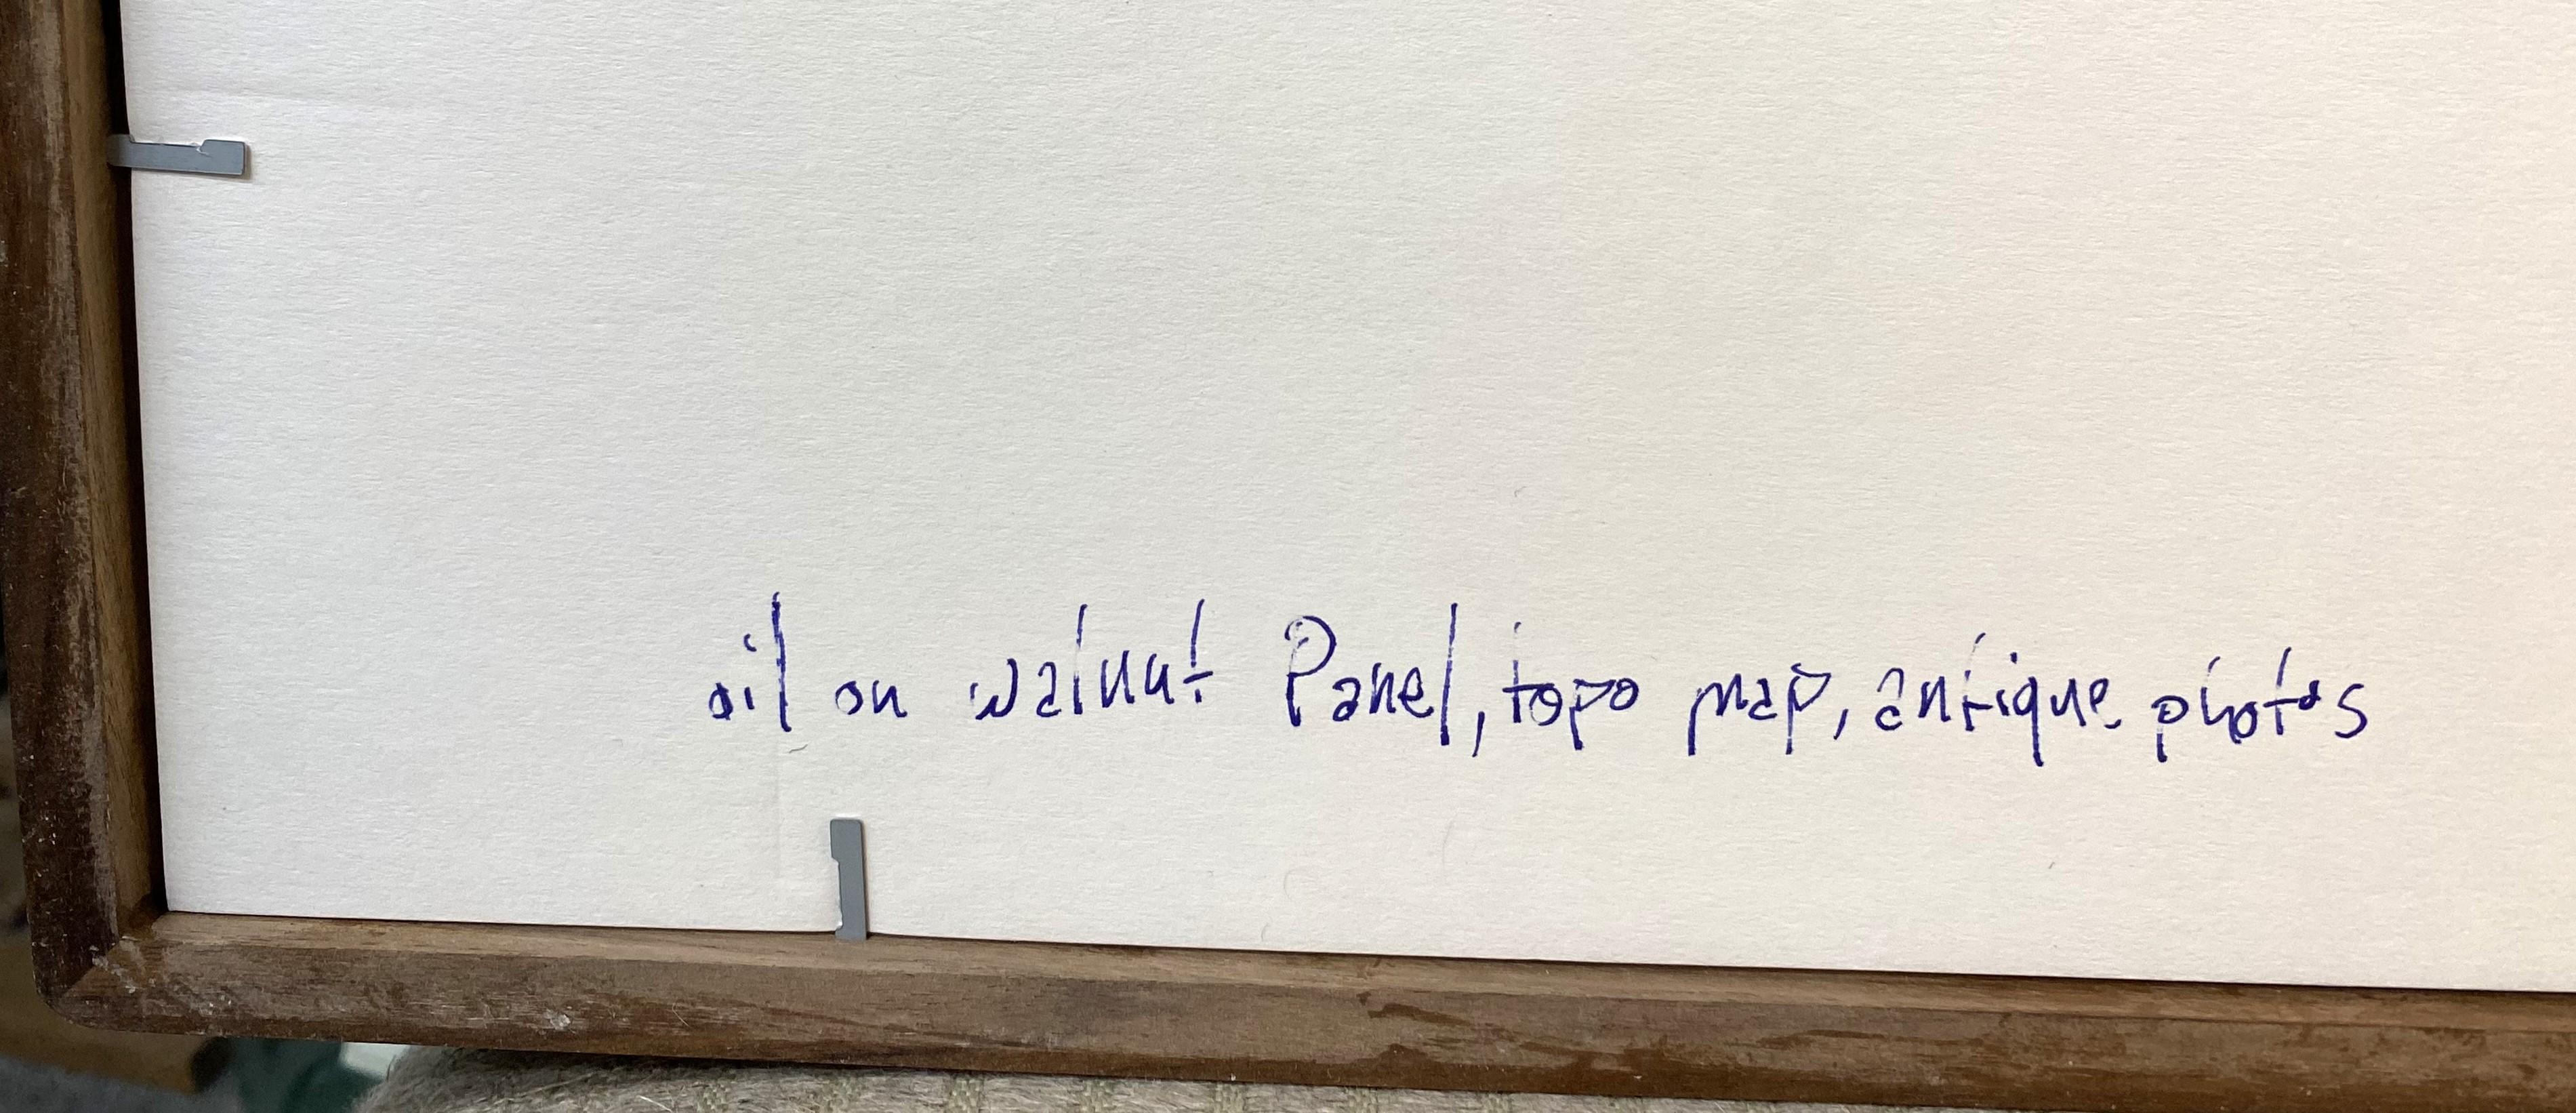 oil on walnut Panel, topo map, antique photos